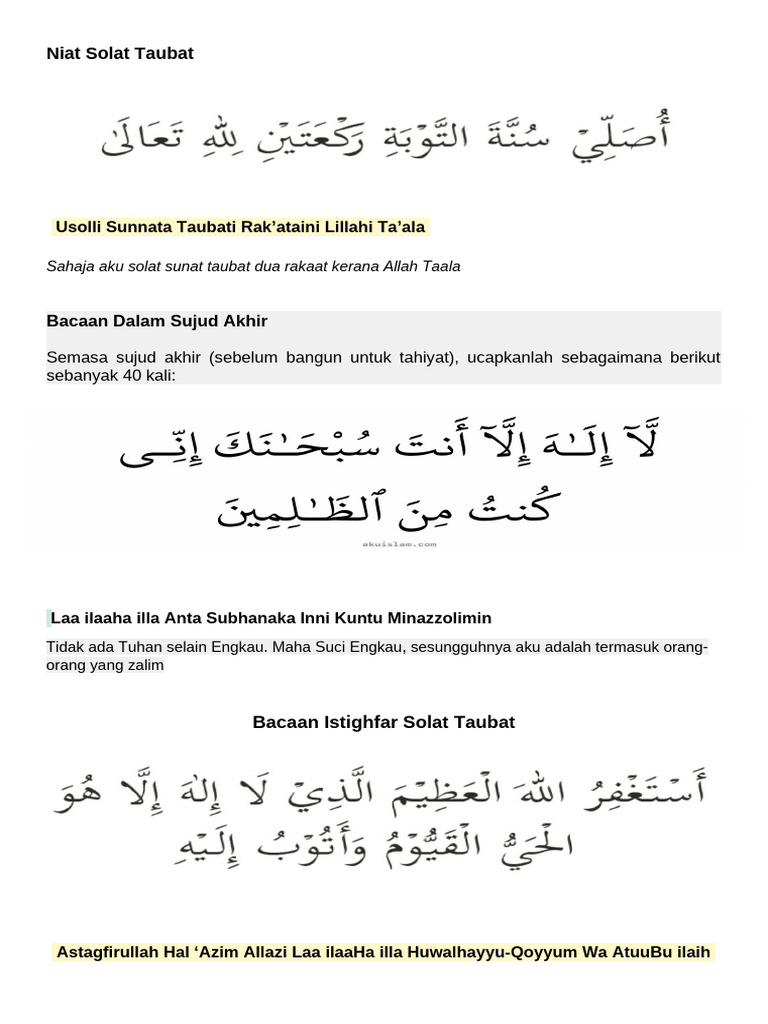 Niat Solat Taubat
أُصَلِّيْ سُنَّةَ التَّوْبَةِ رَكْعَتَيْنِ لِلّٰهِ تَعَالَىٰ
Usolli Sunnata Taubati Rak’ataini Lillahi Ta’ala
Sahaja aku solat sunat taubat dua rakaat kerana Allah Taala
Bacaan Dalam Sujud Akhir
Semasa sujud akhir (sebelum bangun untuk tahiyat), ucapkanlah sebagaimana berikut
sebanyak 40 kali:
لَّآ إِلَـٰهَ إِلَّآ أَنتَ سُبْحَـٰنَكَ إِنِّـى
كُنتُ مِنَ ٱلظَّـٰلِمِينَ
akuislam.com
Laa ilaaha illa Anta Subhanaka Inni Kuntu Minazzolimin
Tidak ada Tuhan selain Engkau. Maha Suci Engkau, sesungguhnya aku adalah termasuk orang-
orang yang zalim
Bacaan Istighfar Solat Taubat
أَسْتَغْفِرُ اللهَ الْعَظِيْمَ الَّذِيْ لَا إِلٰهَ إِلَّا هُوَ
الْحَيُّ الْقَيُّوْمُ وَأَتُوْبُ إِلَيْهِ
Astagfirullah Hal ‘Azim Allazi Laa ilaaHa illa Huwalhayyu-Qoyyum Wa AtuuBu ilaih